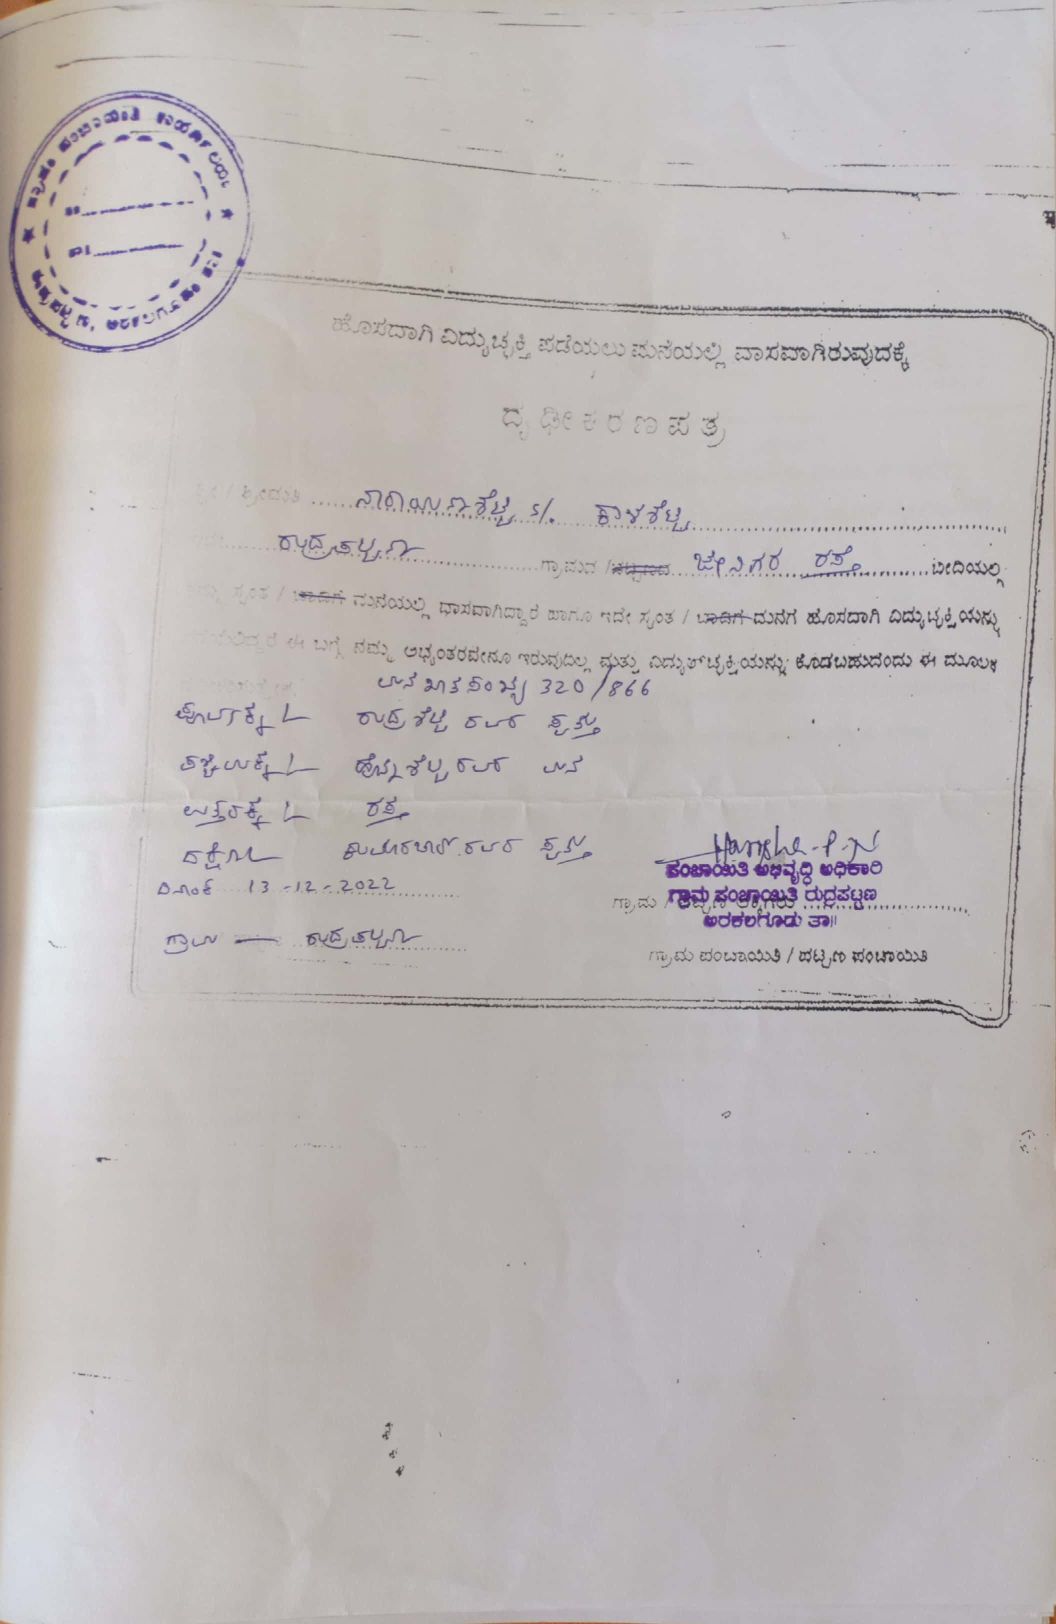 ಗ್ರಾಮ ಪಂಚಾಯಿತಿ ಕಾರ್ಯಾಲಯ
ನಂ
ದಿ
ಹೊಸದಾಗಿ ವಿದ್ಯುಚ್ಛಕ್ತಿ ಪಡೆಯಲು ಮನೆಯಲ್ಲಿ ವಾಸವಾಗಿರುವುದಕ್ಕೆ
ದೃಢೀಕರಣ ಪತ್ರ
ಶ್ರೀ / ಶ್ರೀಮತಿ ...... ನಾರಾಯಣಶೆಟ್ಟಿ s/. ಕಾಳಶೆಟ್ಟಿ
ರುದ್ರಪಟ್ಟಣ ಗ್ರಾಮದ / ಪಟ್ಟಣದ ಜೇನಿಗರ ರಸ್ತೆ ಬೀದಿಯಲ್ಲಿ
ಸ್ವಂತ / ಬಾಡಿಗೆ ಮನೆಯಲ್ಲಿ ವಾಸವಾಗಿದ್ದಾರೆ ಹಾಗೂ ಇದೇ ಸ್ವಂತ / ಬಾಡಿಗೆ ಮನೆಗೆ ಹೊಸದಾಗಿ ವಿದ್ಯುಚ್ಛಕ್ತಿಯನ್ನು
ಈ ಬಗ್ಗೆ ನಮ್ಮ ಅಭ್ಯಂತರವೇನೂ ಇರುವುದಿಲ್ಲ ಮತ್ತು ವಿದ್ಯುತ್‌ಚ್ಛಕ್ತಿಯನ್ನು ಕೊಡಬಹುದೆಂದು ಈ ಮೂಲಕ
ಮನೆ ಖಾತೆ ಸಂಖ್ಯೆ 320/866
ಪೂರ್ವಕ್ಕೆ ರುದ್ರಶೆಟ್ಟಿ ರವರ ಸ್ವತ್ತು
ಪಶ್ಚಿಮಕ್ಕೆ ಶೆಟ್ಟಿ ರವರ ಮನೆ
ಉತ್ತರಕ್ಕೆ ರಸ್ತೆ
ದಕ್ಷಿಣ ರವರ ಸ್ವತ್ತು
ದಿನಾಂಕ 13-12-2022
Harisha.P.N
ಪಂಚಾಯಿತಿ ಅಭಿವೃದ್ಧಿ ಅಧಿಕಾರಿ
ಗ್ರಾಮ ಪಂಚಾಯಿತಿ ರುದ್ರಪಟ್ಟಣ
ಅರಕಲಗೂಡು ತಾ॥
ಗ್ರಾಮ /
ಗ್ರಾಮ ರುದ್ರಪಟ್ಟಣ
ಗ್ರಾಮ ಪಂಚಾಯಿತಿ / ಪಟ್ಟಣ ಪಂಚಾಯಿತಿ